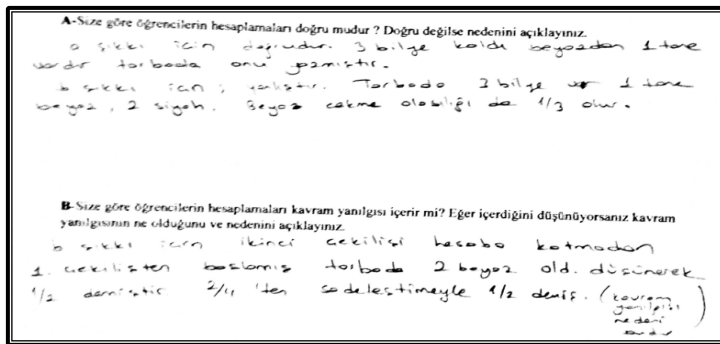 A-Size göre öğrencilerin hesaplamaları doğru mudur ? Doğru değilse nedenini açıklayınız.
a şıkkı için doğrudur. 3 bilye kaldı beyazdan 1 tane
vardır torbada onu yazmıştır.
b şıkkı için ; yanlıştır. Torbada 3 bilye var 1 tane
beyaz, 2 siyah. Beyaz çekme olasılığı da 1/3 olur.
B-Size göre öğrencilerin hesaplamaları kavram yanılgısı içerir mi? Eğer içerdiğini düşünüyorsanız kavram
yanılgısının ne olduğunu ve nedenini açıklayınız.
b şıkkı için ikinci çekilişi hesaba katmadan
1. çekilişten başlamış torbada 2 beyaz old. düşünerek
1/2 demiştir 2/4 'ten sadeleştimeyle 1/2 demiş. (kavram
yanılgısı
nedeni
budur)